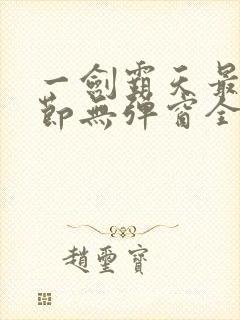 一劍霸天最
節無彈窗全
趙璽寶